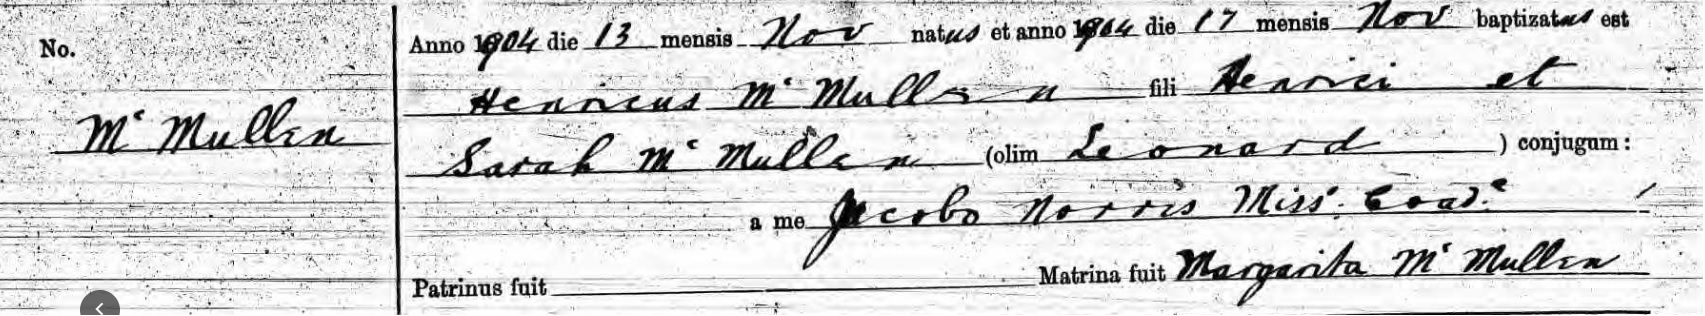 No.
Anno 1904 die 13 mensis Nov natus et anno 1904 die 17 mensis Nov baptizatus est
Henricus Mc Mullen fili Henrici et
Mc Mullen
Sarah Mc Mullen (olim Leonard ) conjugum:
a me Jacobo Norris Miss. Coad.
Patrinus fuit Matrina fuit Margarita Mc Mullen